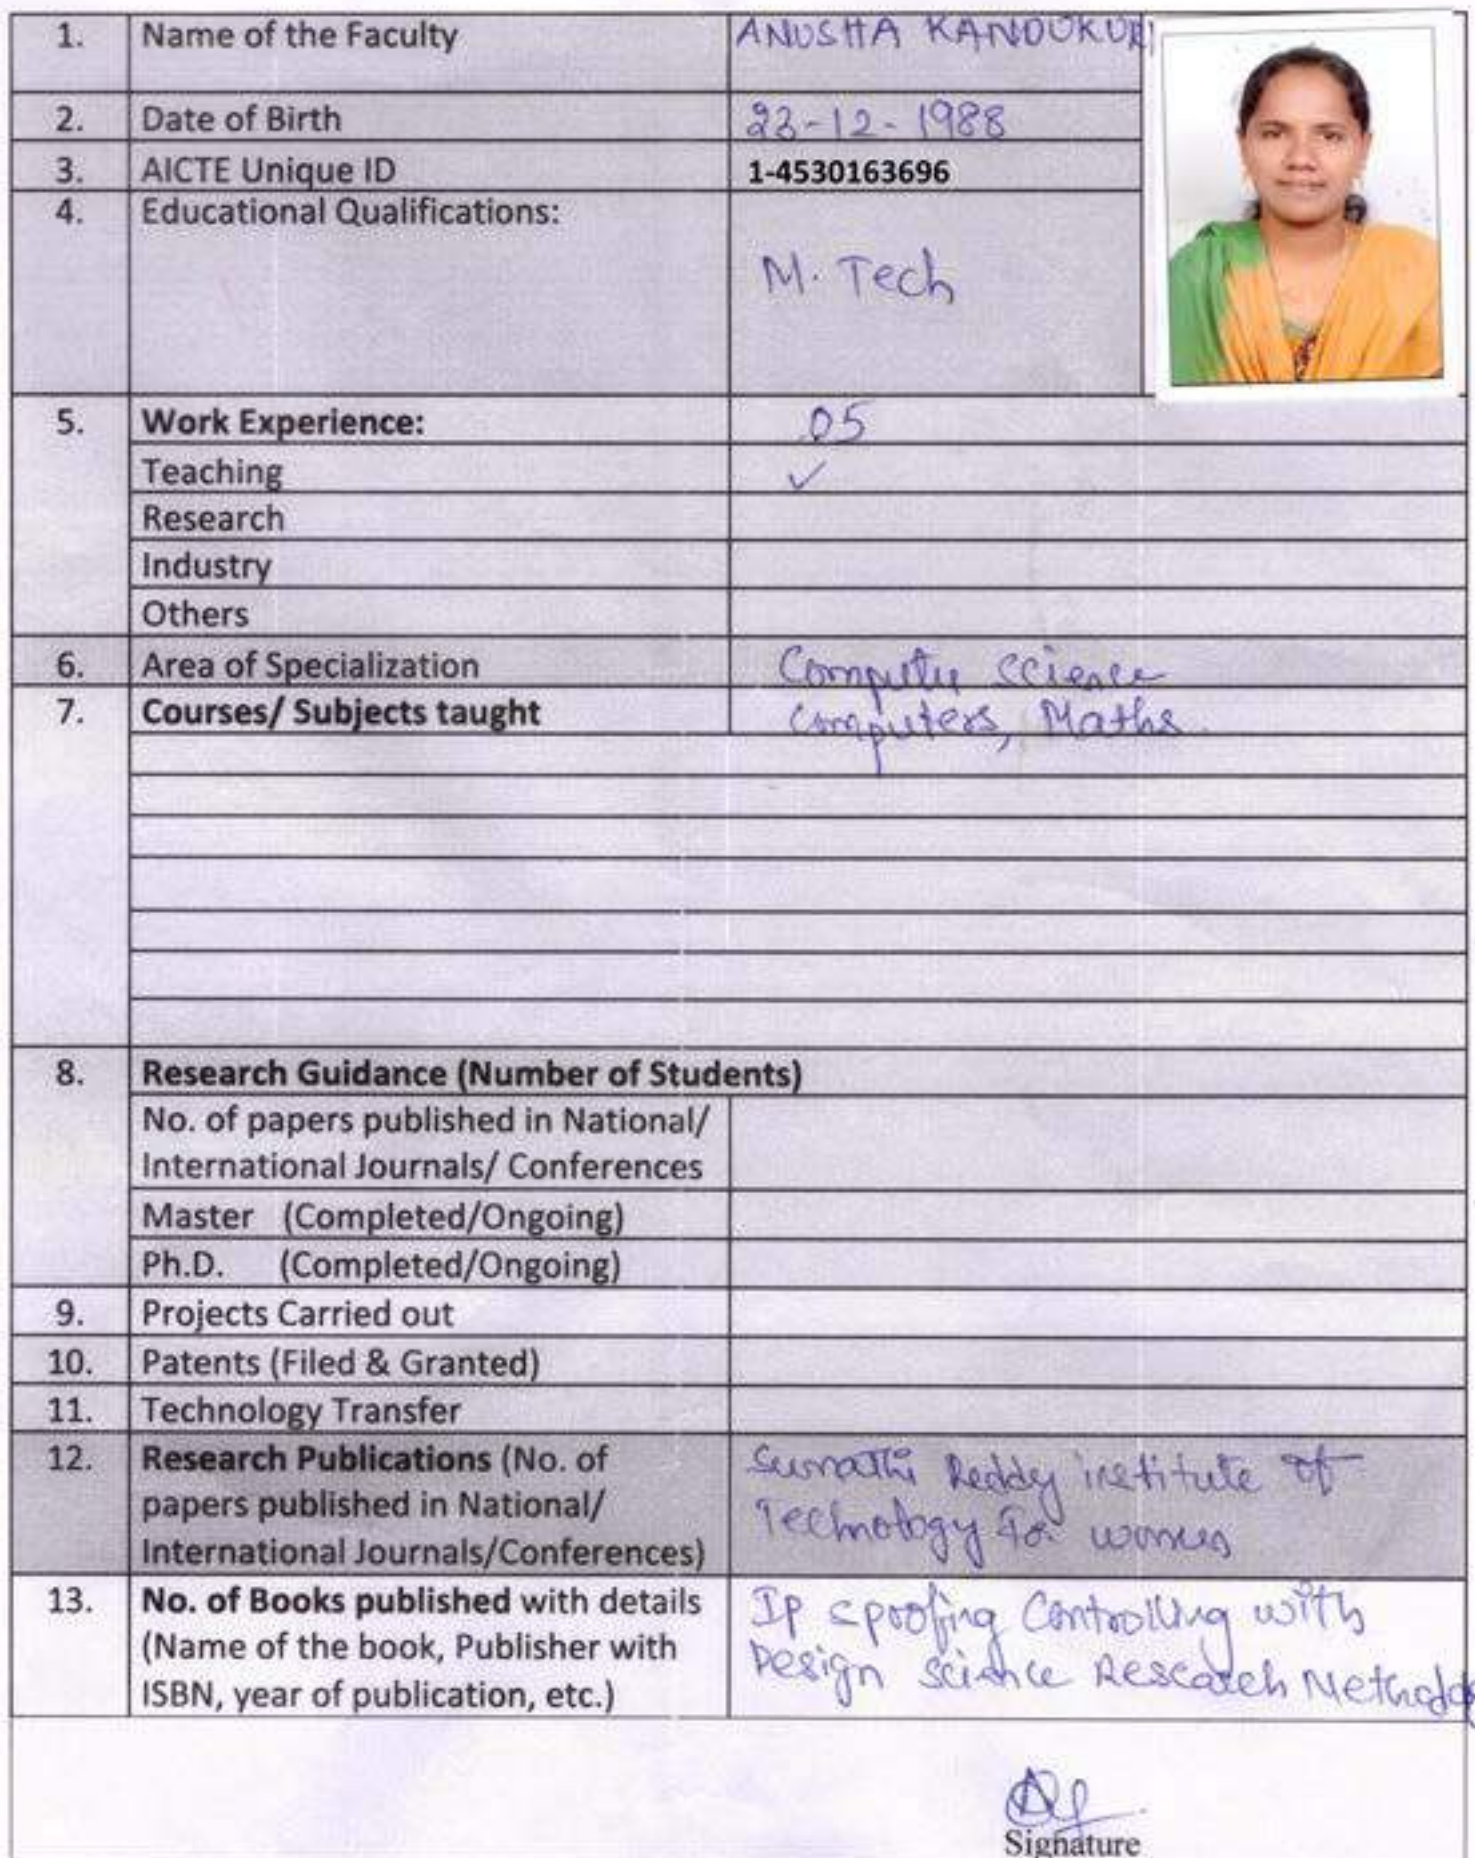 1. Name of the Faculty ANUSHA KANDUKURI
2. Date of Birth 23-12-1988
3. AICTE Unique ID 1-4530163696
4. Educational Qualifications:
M. Tech
5. Work Experience: 05
Teaching ✓
Research
Industry
Others
6. Area of Specialization Computer Science
7. Courses/ Subjects taught Computers, Maths.
8. Research Guidance (Number of Students)
No. of papers published in National/
International Journals/ Conferences
Master (Completed/Ongoing)
Ph.D. (Completed/Ongoing)
9. Projects Carried out
10. Patents (Filed & Granted)
11. Technology Transfer
12. Research Publications (No. of
papers published in National/
International Journals/Conferences)
Sumathi Reddy institute of
Technology for women
13. No. of Books published with details
(Name of the book, Publisher with
ISBN, year of publication, etc.)
Ip spoofing Controlling with
Design science Research
Signature